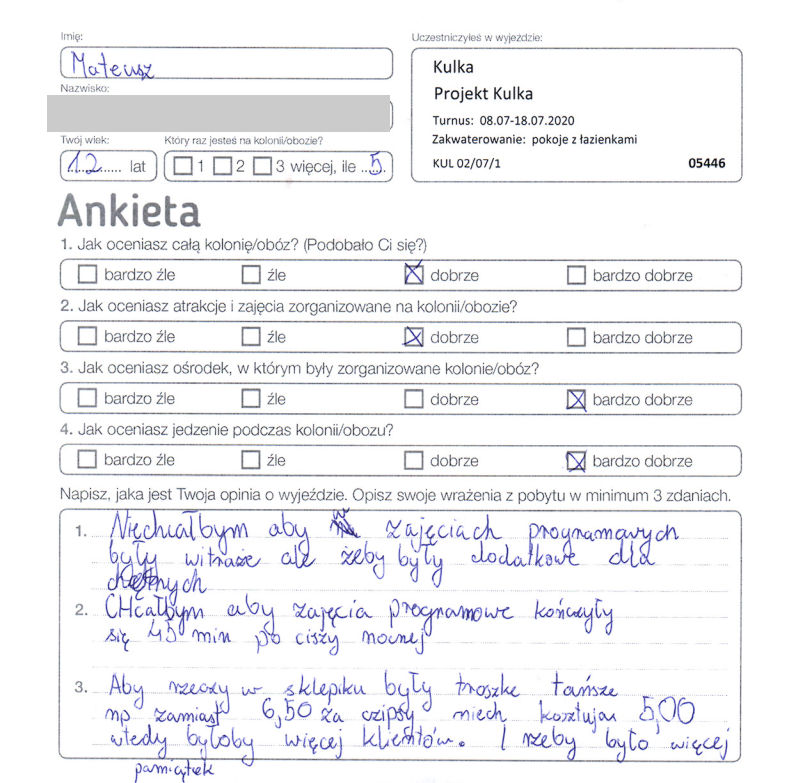 Imię:
Mateusz
Nazwisko:
Twój wiek:
12 lat
Który raz jesteś na kolonii/obozie?
1 2 3 więcej, ile 5
Uczestniczyłeś w wyjeździe:
Kulka
Projekt Kulka
Turnus: 08.07-18.07.2020
Zakwaterowanie: pokoje z łazienkami
KUL 02/07/1 05446
Ankieta
1. Jak oceniasz całą kolonię/obóz? (Podobało Ci się?)
bardzo źle źle dobrze bardzo dobrze
2. Jak oceniasz atrakcje i zajęcia zorganizowane na kolonii/obozie?
bardzo źle źle dobrze bardzo dobrze
3. Jak oceniasz ośrodek, w którym były zorganizowane kolonie/obóz?
bardzo źle źle dobrze bardzo dobrze
4. Jak oceniasz jedzenie podczas kolonii/obozu?
bardzo źle źle dobrze bardzo dobrze
Napisz, jaka jest Twoja opinia o wyjeździe. Opisz swoje wrażenia z pobytu w minimum 3 zdaniach.
1. Niechciałbym aby w zajęciach programowych
były witraże ale żeby były dodatkowe dla
chętnych
2. CHcałbym aby zajęcia programowe kończyły
się 45 min po ciszy nocnej
3. Aby rzeczy w sklepiku były troszke tańsze
np zamiast 6,50 za czipsy niech kosztują 5,00
wtedy byłoby więcej klientów. I rzeby było więcej
pamiątek